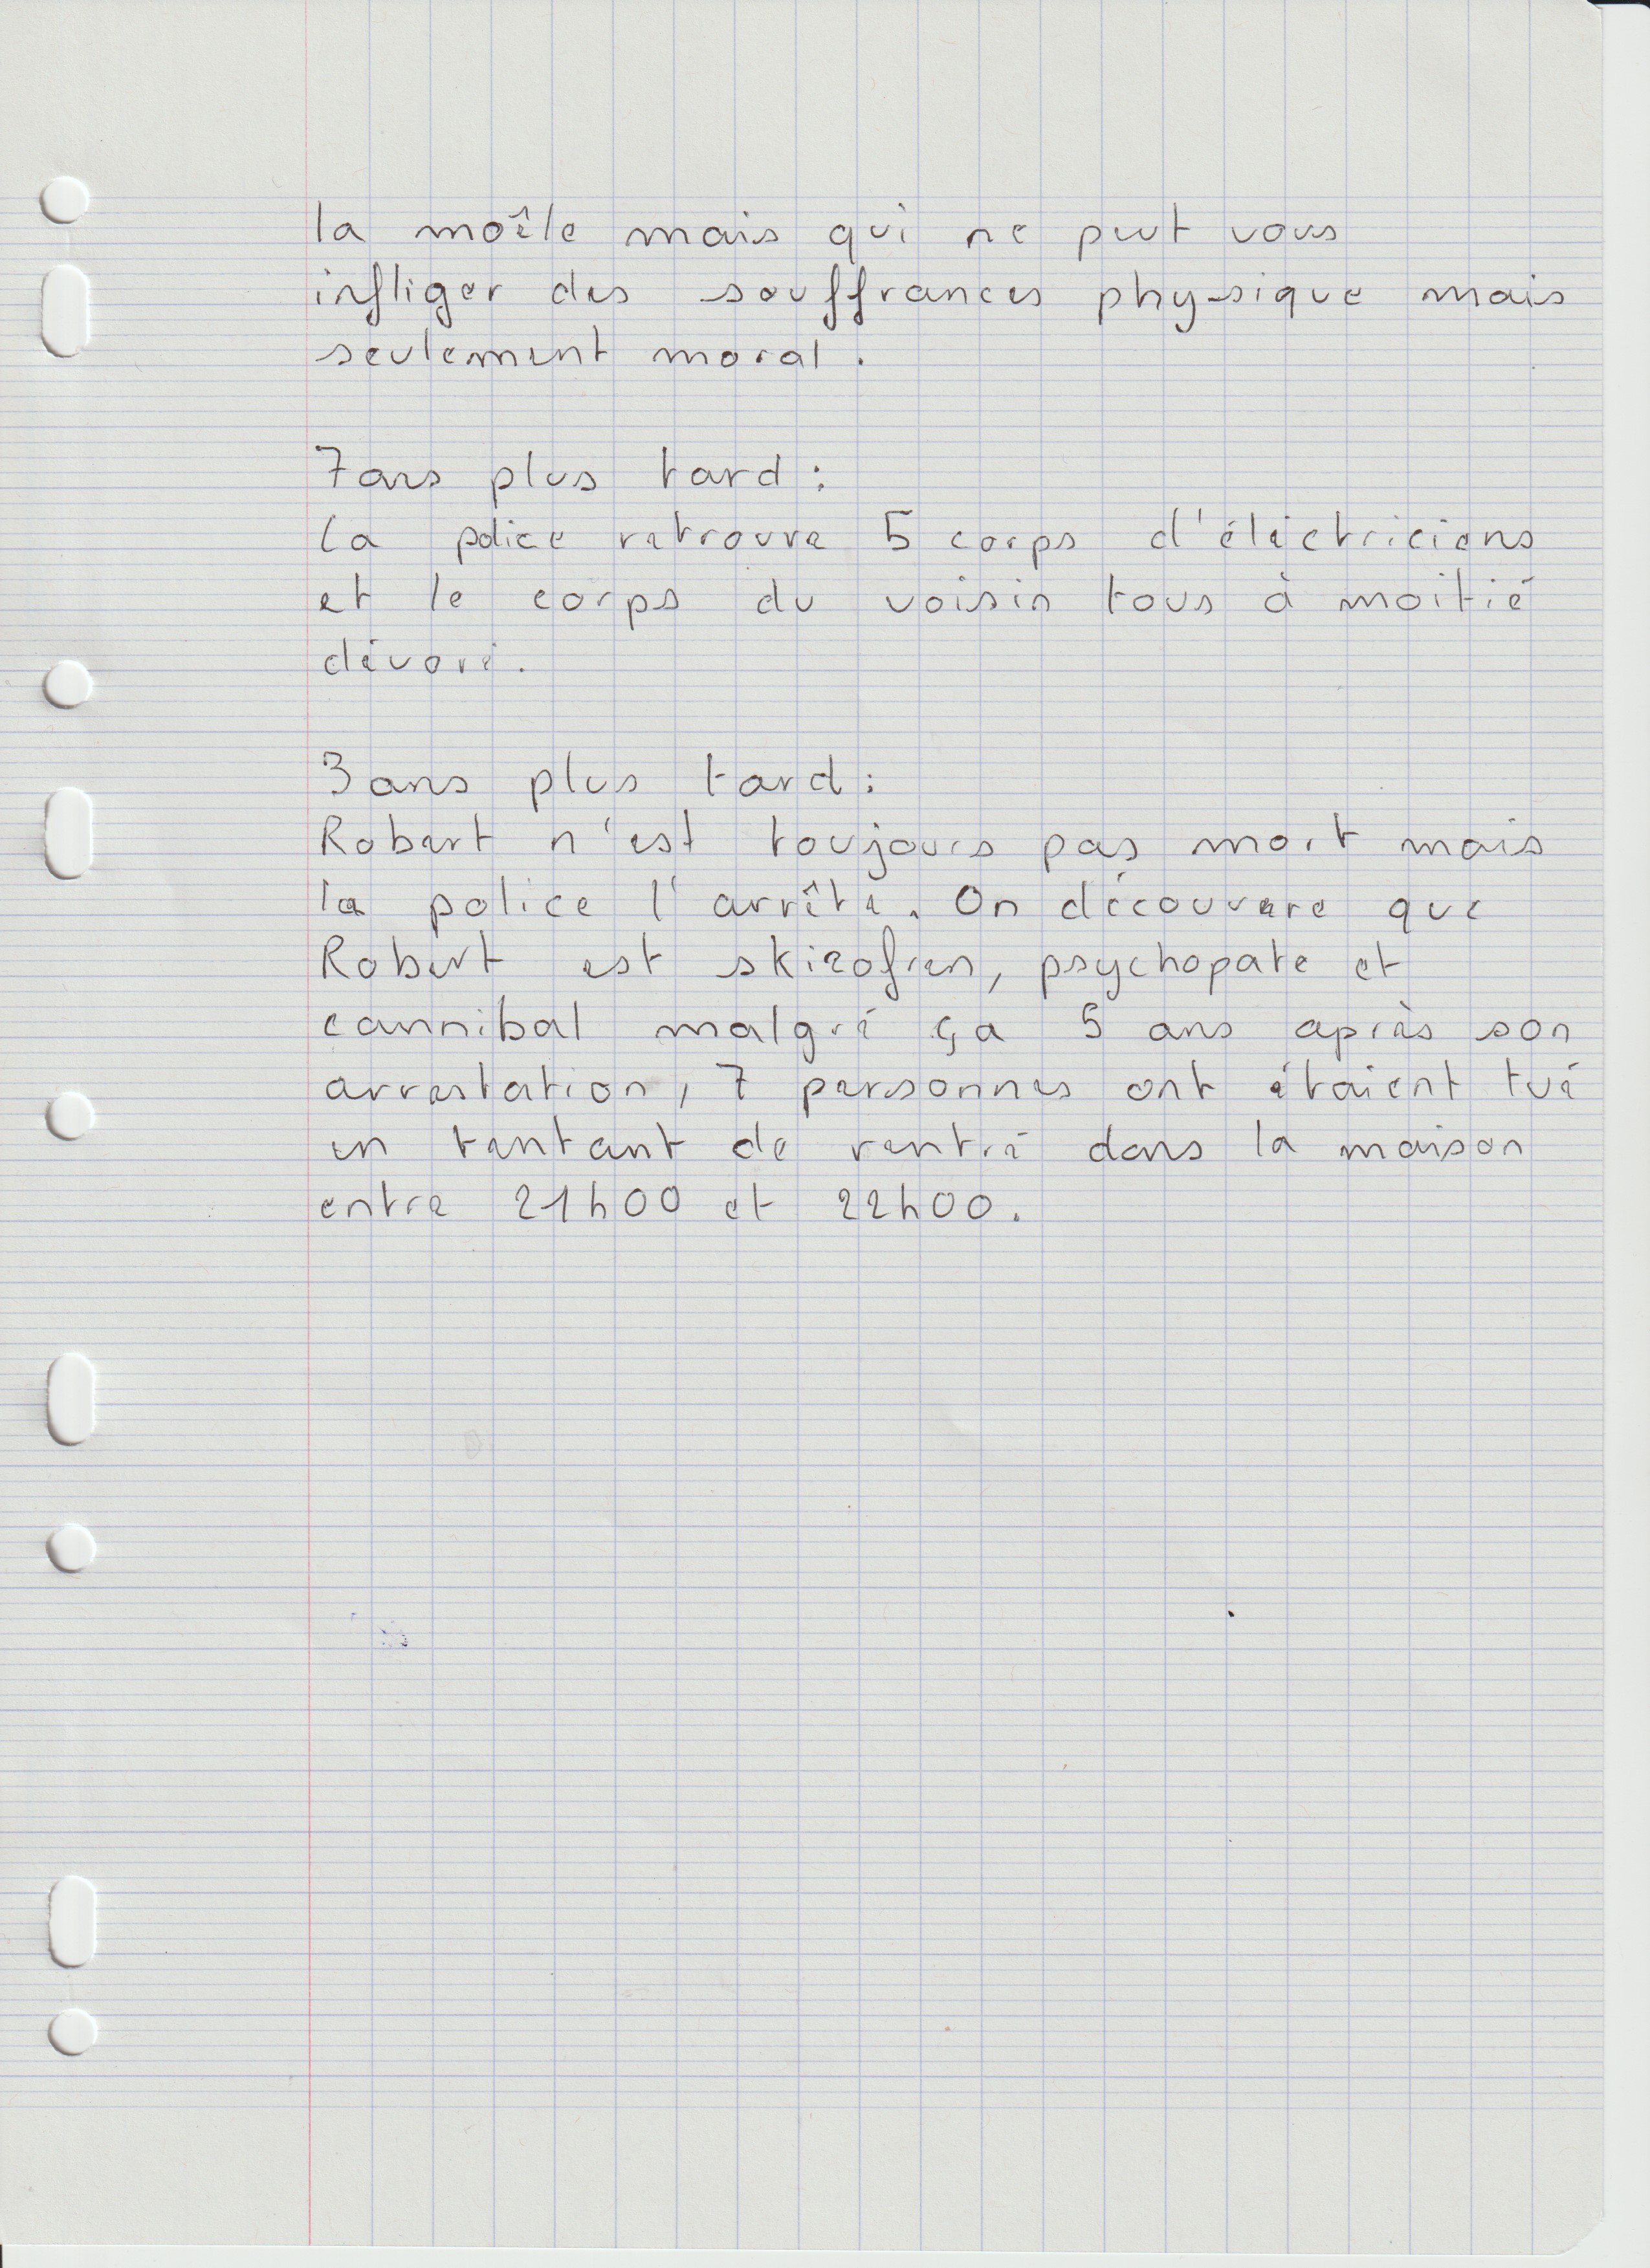 la moêle mais qui ne peut vous
infliger des souffrances physique mais
seulement moral.
7ans plus tard :
La police retrouve 5 corps d'éléctriciens
et le corps du voisin tous à moitié
dévoré.
3ans plus tard :
Robert n'est toujours pas mort mais
la police l'arrête. On découvere que
Robert est skizofren, psychopate et
cannibal malgré ça 5 ans après son
arrestation, 7 personnes ont étaient tué
en tentant de rentré dans la maison
entre 21h00 et 22h00.